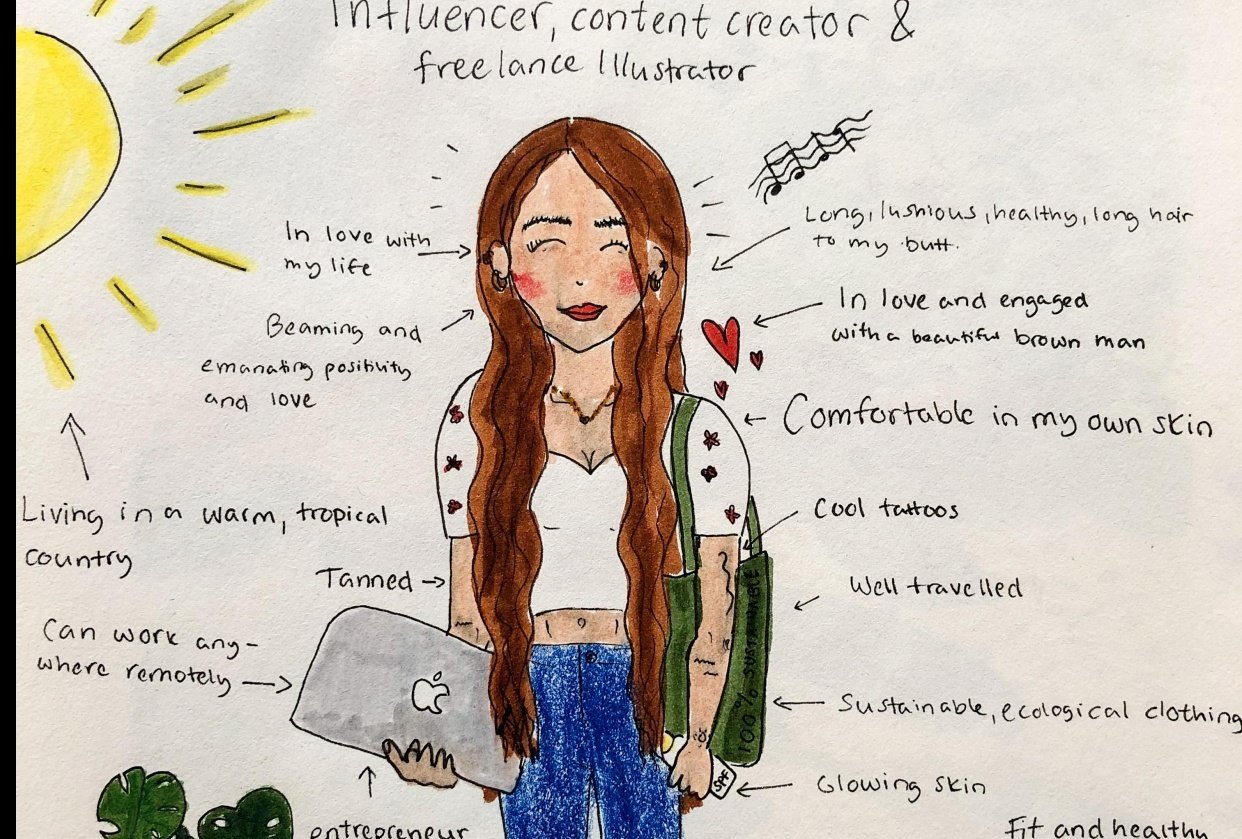 Influencer, content creator &
freelance Illustrator
In love with
my life
Long, lushious, healthy, long hair
to my butt.
In love and engaged
with a beautiful brown man
Beaming and
emanating positivity
and love
Comfortable in my own skin
Living in a warm, tropical
country
Cool tattoos
Tanned
Well travelled
Can work any-
where remotely
100% SUSTAINABLE
Sustainable, ecological clothing
SPF
Glowing skin
entrepreneur
Fit and healthy